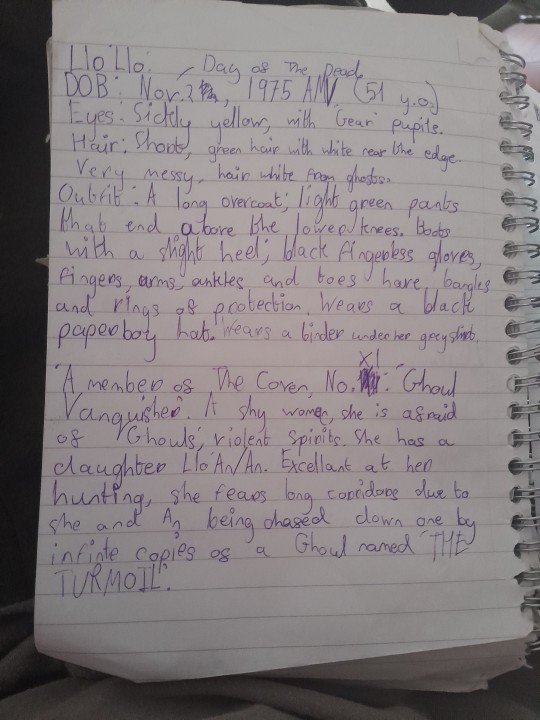 Llo'Llo.
Day of The Dead
DOB: Nov. 2, 1975 AM (51 y.o.)
Eyes: Sickly yellow, with 'Gear' pupils.
Hair: Short, green hair with white near the edge.
Very messy, hair white from ghosts.
Outfit: A long overcoat; light green pants
that end above the lower/knees. Boots
with a slight heel; black fingerless gloves,
fingers, arms, ankles and toes have bangles
and rings of protection. Wears a black
paperboy hat. Wears a binder under her grey shirt.
XI
'A member of The Coven, No. : 'Ghoul
Vanquisher'. A shy women, she is afraid
of 'Ghouls', violent spirits. She has a
daughter Llo'An/An. Excellant at her
hunting, she fears long corridors due to
she and An being chased down one by
infinte copies of a Ghoul named 'THE
TURMOIL'.